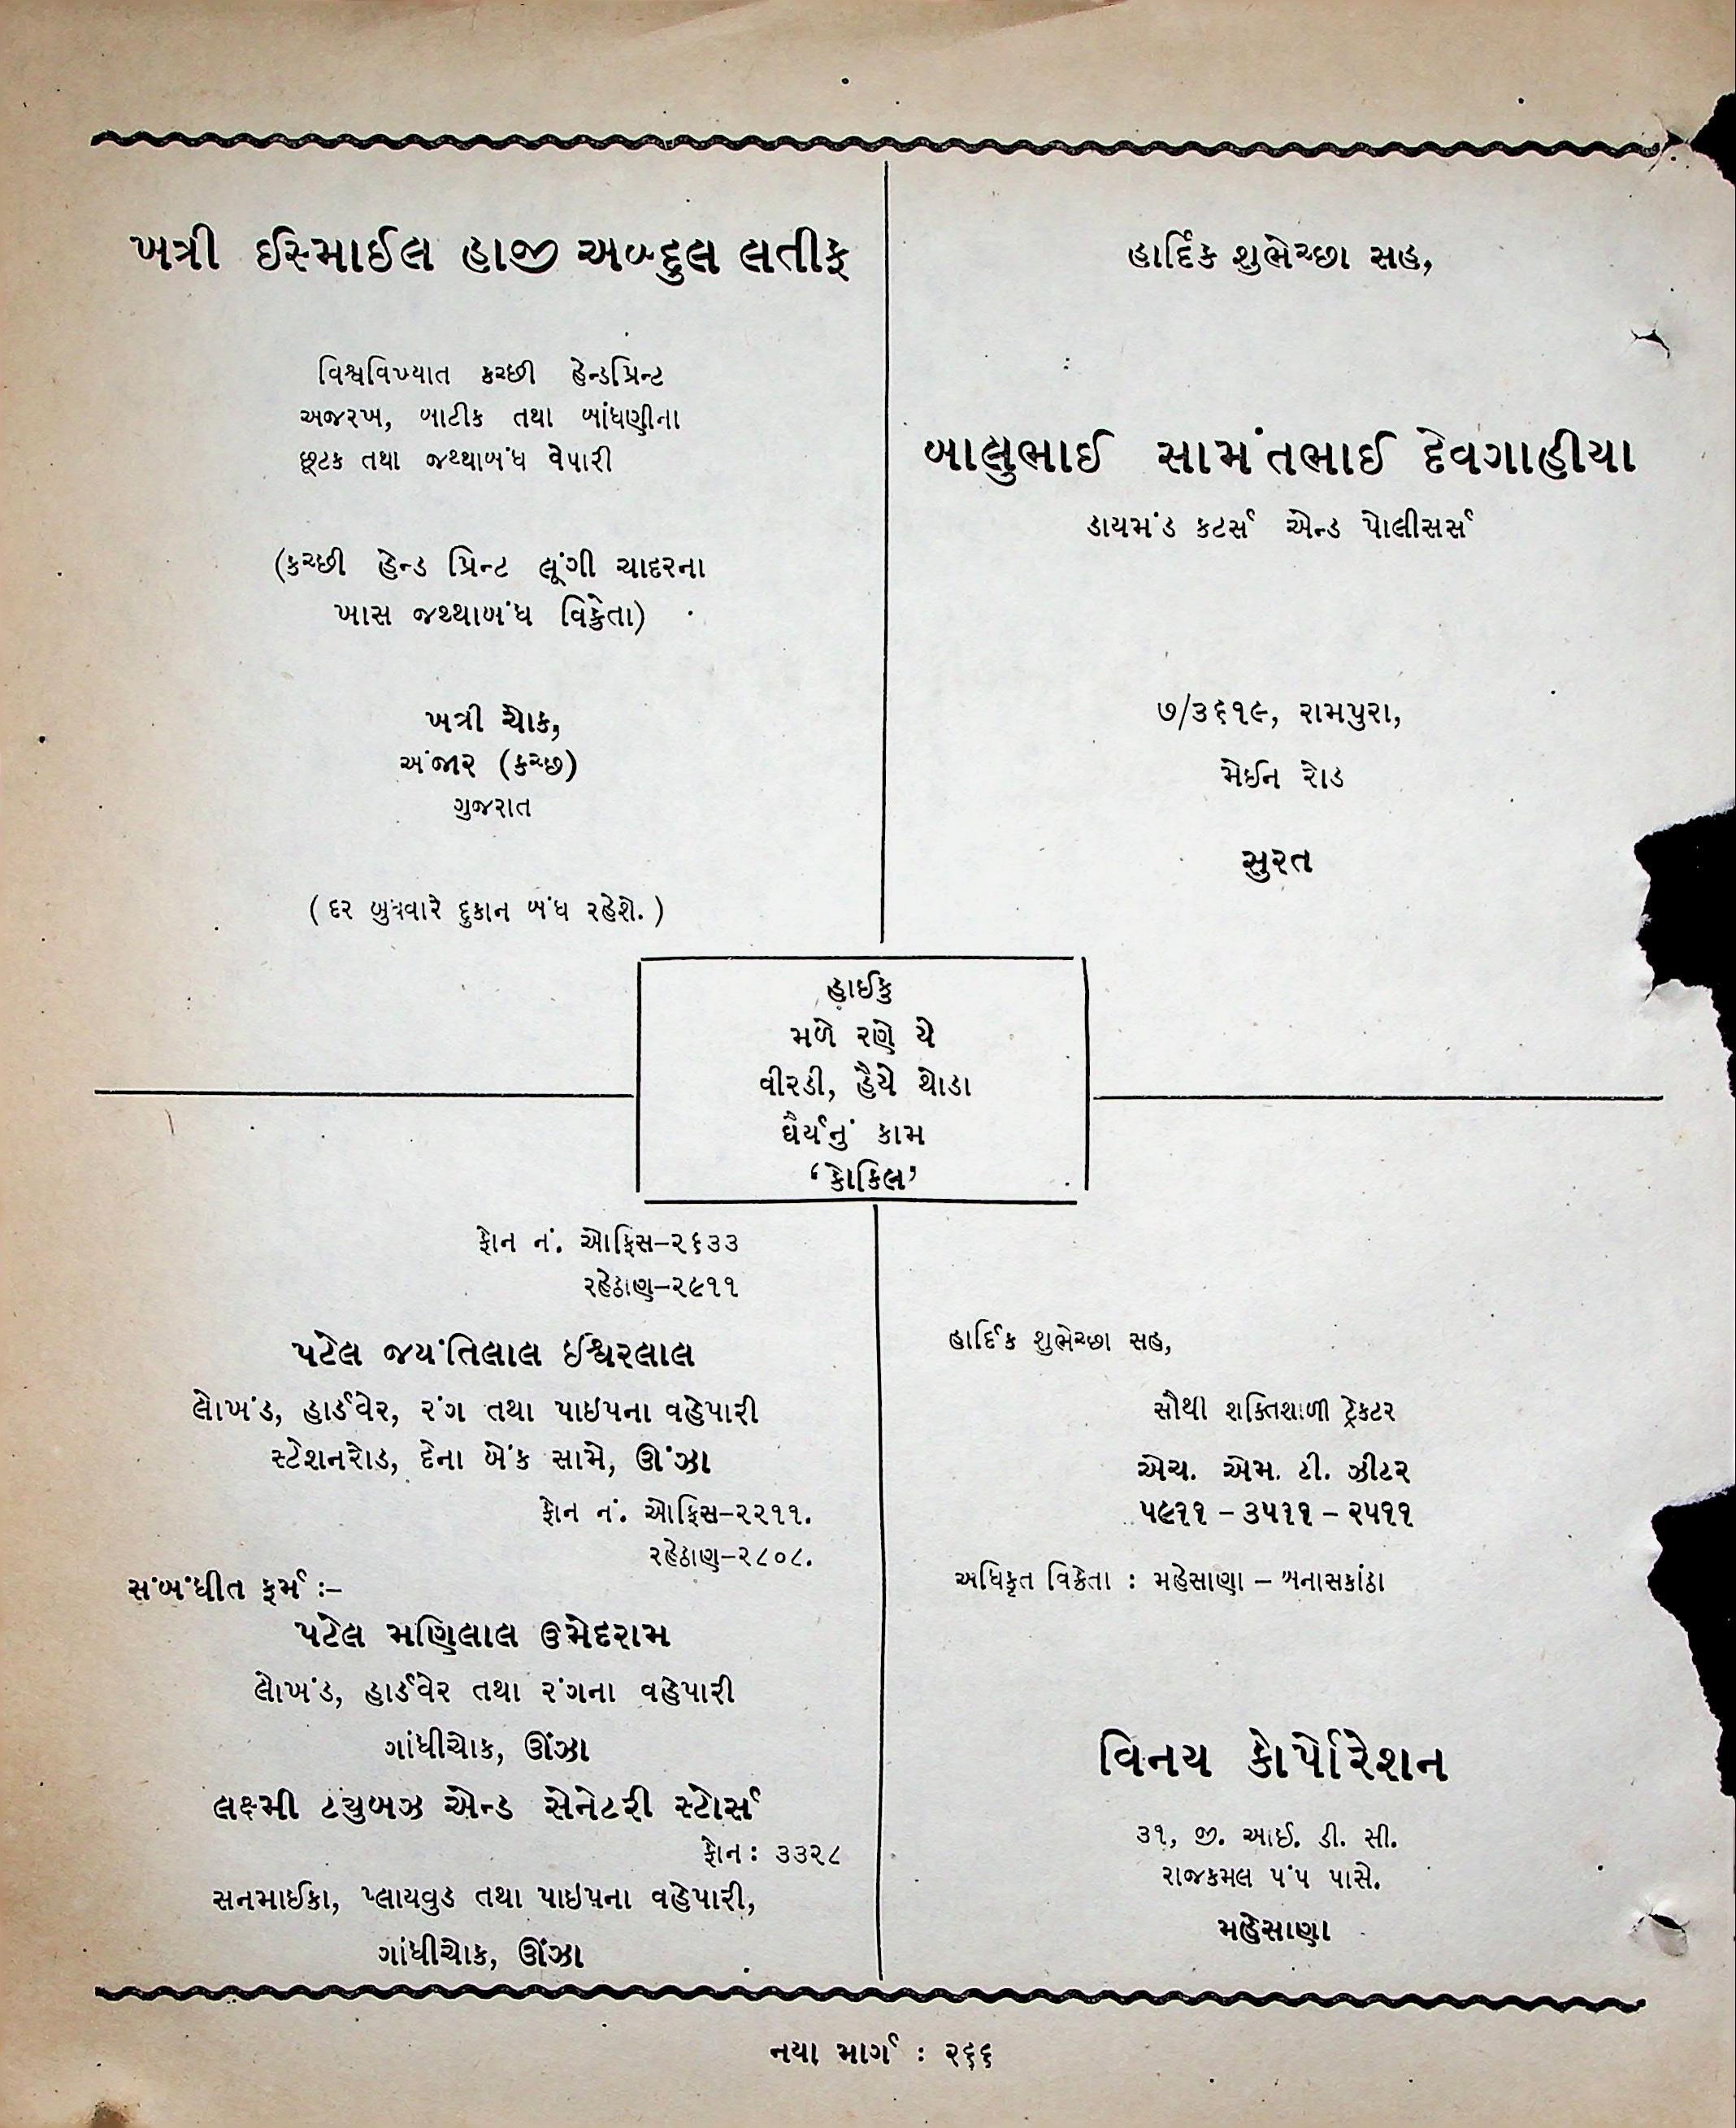 ખત્રી ઈસ્માઈલ હાજી અબ્દુલ લતીફ
વિશ્વવિખ્યાત કચ્છી હેન્ડપ્રિન્ટ
અજરખ, બાટીક તથા બાંધણીના
છૂટક તથા જથ્થાબંધ વેપારી
(કચ્છી હેન્ડ પ્રિન્ટ લૂંગી ચાદરના
ખાસ જથ્થાબંધ વિક્રેતા)
ખત્રી ચોક,
અંજાર (કચ્છ)
ગુજરાત
(દર બુધવારે દુકાન બંધ રહેશે.)
હાર્દિક શુભેચ્છા સહ,
બાલુભાઈ સામંતભાઈ દેવગાહીયા
ડાયમંડ કટર્સ એન્ડ પોલીસર્સ
૭/૩૬૧૯, રામપુરા,
મેઈન રોડ
સુરત
હાઈકુ
મળે રણે યે
વીરડી, હૈયે થોડા
ધૈર્યનું કામ
‘કોકિલ’
ફોન નં. ઓફિસ–૨૬૩૩
રહેઠાણ–૨૯૧૧
પટેલ જયંતિલાલ ઈશ્વરલાલ
લોખંડ, હાર્ડવેર, રંગ તથા પાઇપના વહેપારી
સ્ટેશનરોડ, દેના બેંક સામે, ઊંઝા
ફોન નં. ઓફિસ–૨૨૧૧.
રહેઠાણ–૨૮૦૮.
સંબંધીત ફર્મ :–
પટેલ મણિલાલ ઉમેદરામ
લોખંડ, હાર્ડવેર તથા રંગના વહેપારી
ગાંધીચોક, ઊંઝા
લક્ષ્મી ટયુબઝ એન્ડ સેનેટરી સ્ટોર્સ
ફોન : ૩૩૨૮
સનમાઈકા, પ્લાયવુડ તથા પાઇપના વહેપારી,
ગાંધીચોક, ઊંઝા
હાર્દિક શુભેચ્છા સહ,
સૌથી શક્તિશાળી ટ્રેકટર
એચ. એમ. ટી. ઝીટર
૫૯૧૧ – ૩૫૧૧ – ૨૫૧૧
અધિકૃત વિક્રેતા : મહેસાણા – બનાસકાંઠા
વિનય કોર્પોરેશન
૩૧, જી. આઈ. ડી. સી.
રાજકમલ પંપ પાસે.
મહેસાણા
નયા માર્ગ : ૨૬૬